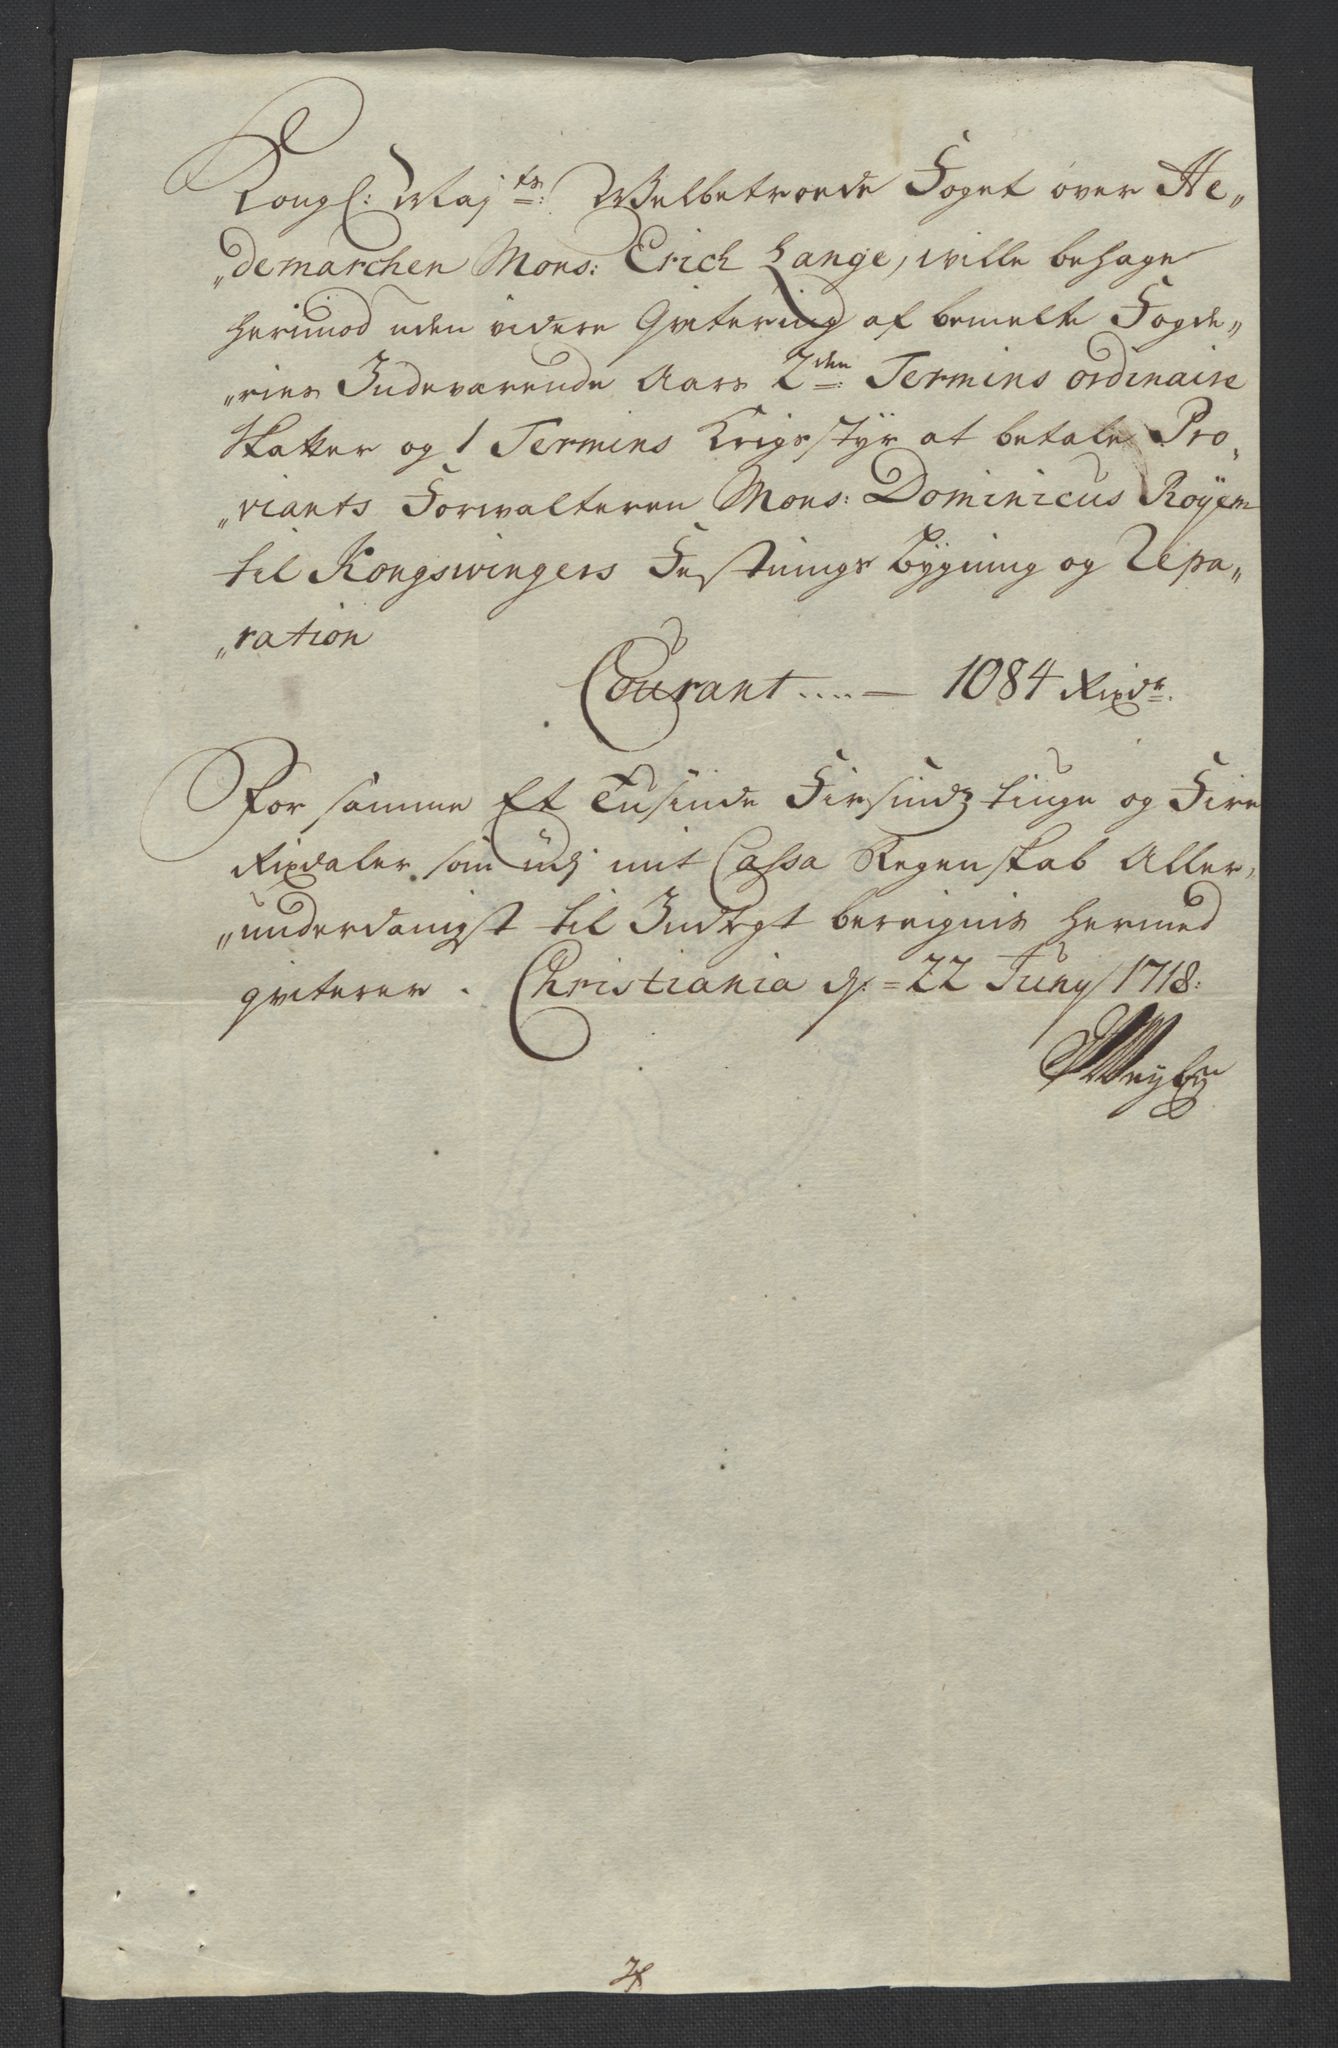 Kongl: Maj^ts: Welbetroede Foget over He„
„demarchen Mons: Erich Lange, wille behage
herimod uden videre Qvitering af bemelte Fogde„
„ries Indeværende Aars 2^den: Termins ordinaire
Skatter og 1 Termins Krigsstÿr at betale Pro„
„viants Forwalteren Mons: Dominicus Roÿem
til Kongswingers Festnings Bÿgning og Repa„
„ration
Courant .... — 1084 Rixdr.
For samme Et Tusinde Firsindz tiuge og Fire
Rixdaler som udj mit Cassa Regenskab Aller„
„underdanigst til Indtegt bereignis hermed
qviterer. Christiania d: 22 Juny 1718: